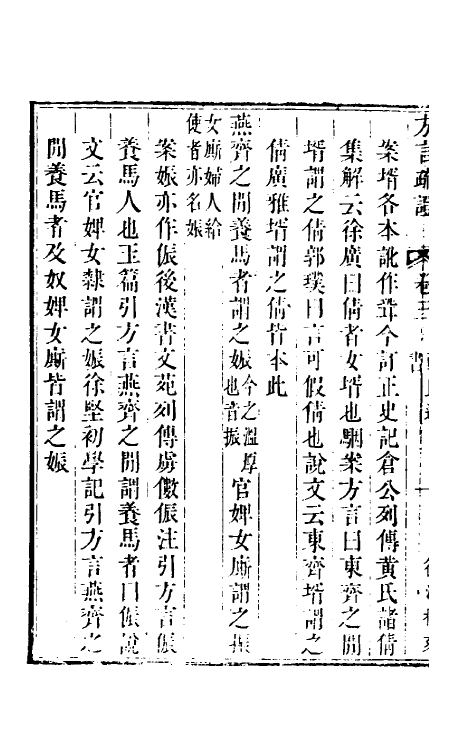 方言疏證
案壻各本訛作聟今訂正史記倉公列傳黃氏諸倩
集解云徐廣曰倩者女壻也駰案方言曰東齊之閒
壻謂之倩郭璞曰言可假倩也說文云東齊壻謂之
倩廣雅壻謂之倩皆本此
燕齊之閒養馬者謂之娠今之溫厚也音振官婢女廝謂之娠
女廝婦人給使者亦名娠
案娠亦作侲後漢書文苑列傳虜儌侲注引方言侲
養馬人也玉篇引方言燕齊之閒謂養馬者曰侲說
文云官婢女隸謂之娠徐堅初學記引方言燕齊之
閒養馬者及奴婢女廝皆謂之娠